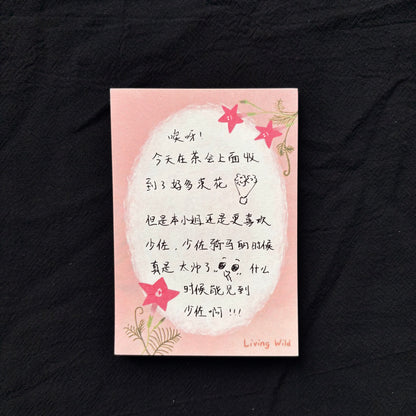 唉呀!
今天在茶会上面收
到了好多菜花
但是本小姐还是更喜欢
少佐，少佐骑马的时候
真是太帅了 什么
时候能见到
少佐啊!!!
Living Wild